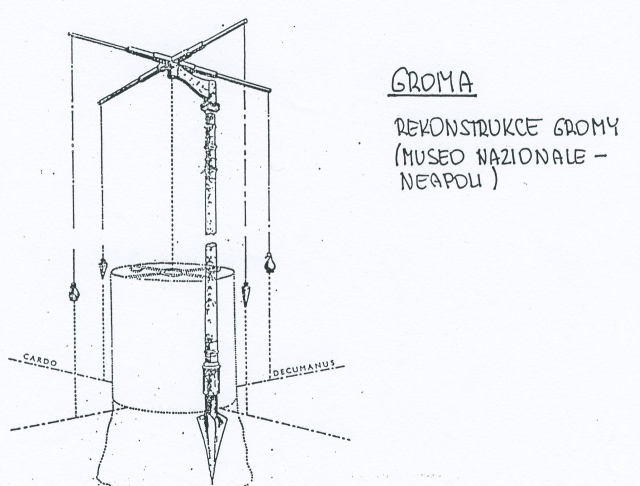 GROMA
REKONSTRUKCE GROMY
(MUSEO NAZIONALE –
NEAPOLI)
CARDO
DECUMANUS